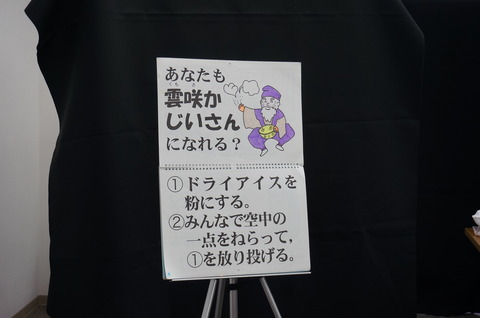 あなたも
雲咲か
じいさん
になれる？
①ドライアイスを
粉にする。
②みんなで空中の
一点をねらって，
①を放り投げる。